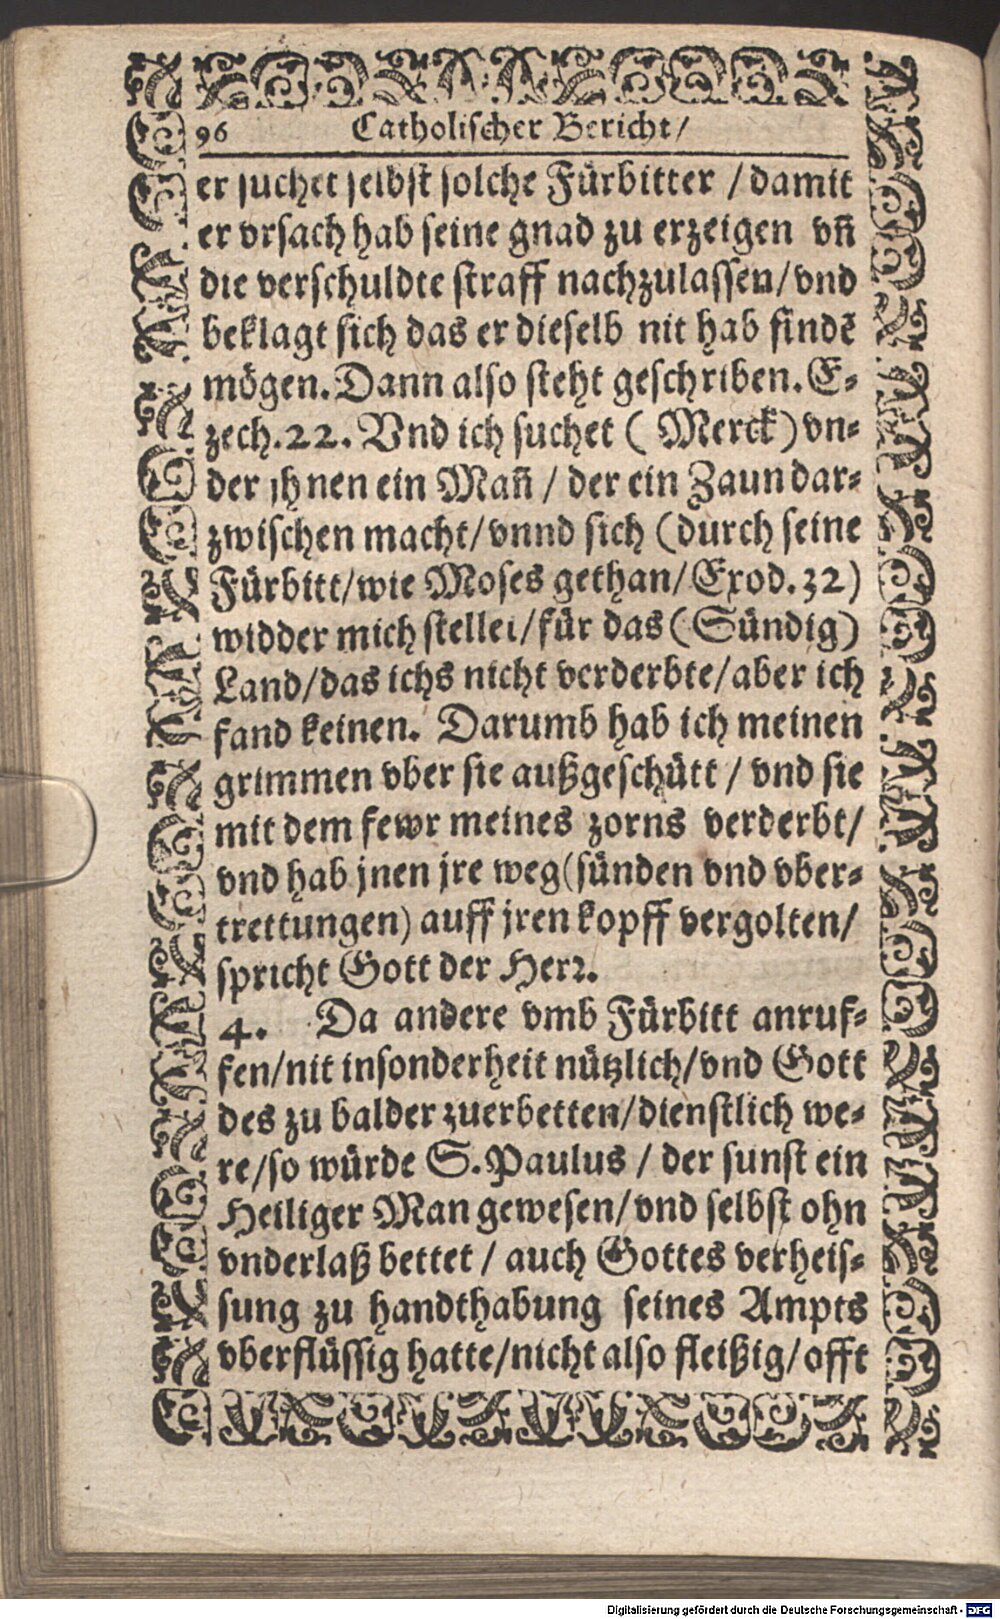 96 Catholischer Bericht/
er suchet selbst solche Fürbitter / damit
er vrsach hab seine gnad zu erzeigen vn̄
die verschuldte straff nachzulassen/vnd
beklagt sich das er dieselb nit hab findē
mögen. Dann also steht geschriben. E-
zech. 22. Vnd ich suchet ( Merck) vn-
der jhnen ein Man̄ / der ein Zaun dar-
zwischen macht/vnnd sich (durch seine
Fürbitt/wie Moses gethan/Exod. 32)
widder mich stellet/für das (Sündig)
Land/das ichs nicht verderbte/aber ich
fand keinen. Darumb hab ich meinen
grimmen vber sie außgeschütt / vnd sie
mit dem fewr meines zorns verderbt/
vnd hab jnen jre weg(sünden vnd vber-
trettungen) auff jren kopff vergolten/
spricht Gott der Herr.
4. Da andere vmb Fürbitt anruf-
fen/nit insonderheit nützlich/vnd Gott
des zu balder zuerbetten/dienstlich we-
re/so würde S. Paulus / der sunst ein
Heiliger Man gewesen/vnd selbst ohn
vnderlaß bettet / auch Gottes verheis-
sung zu handthabung seines Ampts
vberflüssig hatte/nicht also fleißig/offt
Digitalisierung gefördert durch die Deutsche Forschungsgemeinschaft - DFG